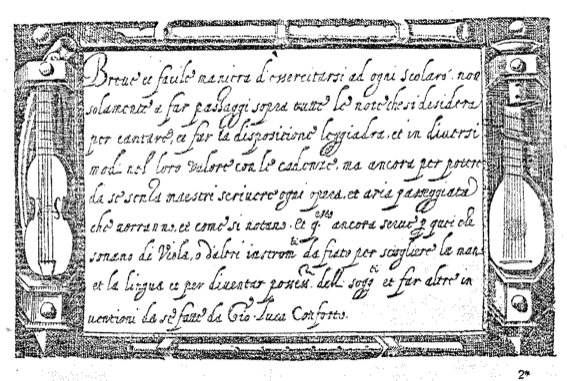 Breve et facile maniera d'essercitarsi ad ogni scolaro non
solamente a far passaggi sopra tutte le note che si disidera
per cantare, et far la dispositione leggiadra, et in diversi
modi nel loro valore con le cadenze, ma ancora per potere
da se senza maestri scrivere ogni opera, et aria passeggiata
che vorranno, et come si notano. Et q.esto ancora serve p quei che
sonano di Viola, o d'altri instrom.ti da fiato per sciogliere la mano
et la lingua et per diventar possess. dell sogg.ti et far altre in
ventioni da se fatte da Gio. Luca Conforto.
2*